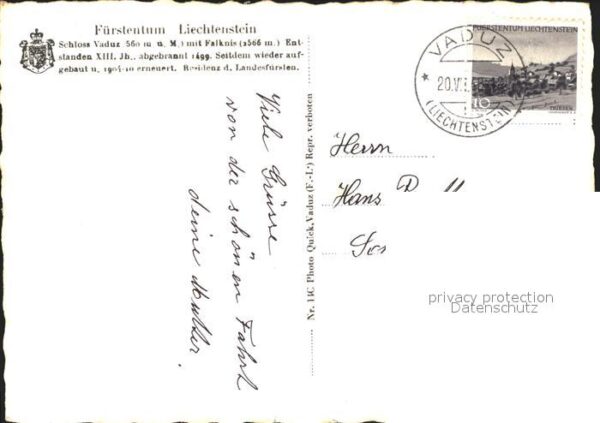 Fürstentum Liechtenstein
Schloss Vaduz 560 m ü. M.) mit Falknis (2566 m.) Ent-
standen XIII. Jh., abgebrannt 1499. Seitdem wieder auf-
gebaut u. 1905-10 erneuert. Residenz d. Landesfürsten.
Viele Grüsse
von der schönen Fahrt
deine Mutter.
Nr. 14C Photo Quick, Vaduz (F.-L.) Repr. verboten
FÜRSTENTUM LIECHTENSTEIN
10
TRIESEN
VADUZ
20.VI.
(LIECHTENSTEIN)
Herrn
Hans
privacy protection
Datenschutz